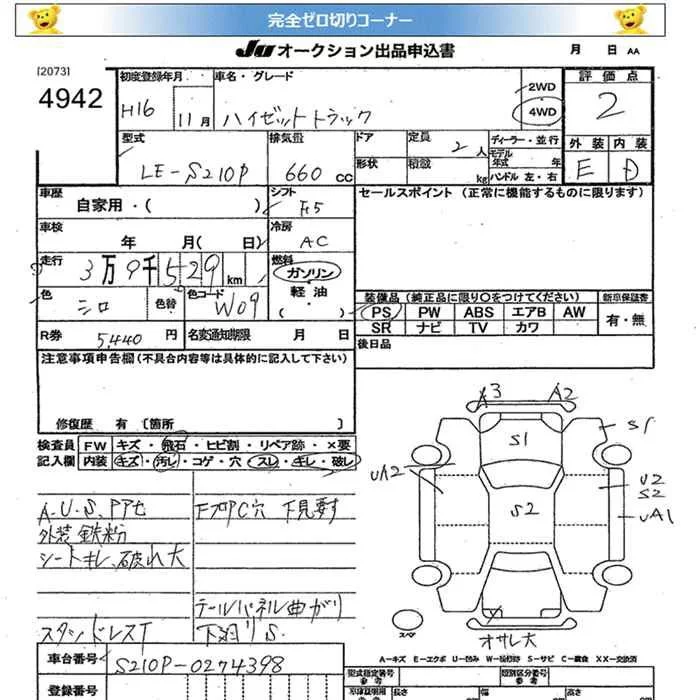 完全ゼロ切りコーナー
JU オークション出品申込書 月 日 AA
[2073]
4942
初度登録年月 車名・グレード
H16 11月 ハイゼットトラック
2WD
4WD
評価点
2
外装 内装
E D
型式 排気量 ドア 定員 2人 ディーラー・並行
LE-S210P 660cc 形状 積載 kg モデル年式 年
ハンドル 左・右
車歴 シフト セールスポイント (正常に機能するものに限ります)
自家用・( ) F5
車検 冷房
年 月( 日) AC
走行 燃料
3万9千529km ガソリン
軽油
( )
色 シロ 色替 色コード W09
装備品(純正品に限り○をつけてください) 新車保証書
PS PW ABS エアB AW 有・無
SR ナビ TV カワ
R券 5,440円 名変通知期限 月 日
後日品
注意事項申告欄(不具合内容等は具体的に記入して下さい)
修復歴 有 〔箇所 〕
検査員 FW キズ・飛石・ヒビ割・リペア跡・×要
記入欄 内装 キズ・汚レ・コゲ・穴・スレ・キレ・破レ
A.U.S.PPセ
外装 鉄粉
シートキレ、破れ大
スタンドレスT
FフロアC穴 下見要す
テールパネル曲がり
下廻りS.
A3 A2
S1 S1
UA2 U2
S2 S2
UA1
オサレ大
スペア
A-キズ E-エクボ U-凹み W-補修跡 S-サビ C-腐食 XX-交換済
車台番号 S210P-0274398
登録番号
型式指定番号 類別区分番号
参考 参考
車庫証明用 長さ 幅 高さ